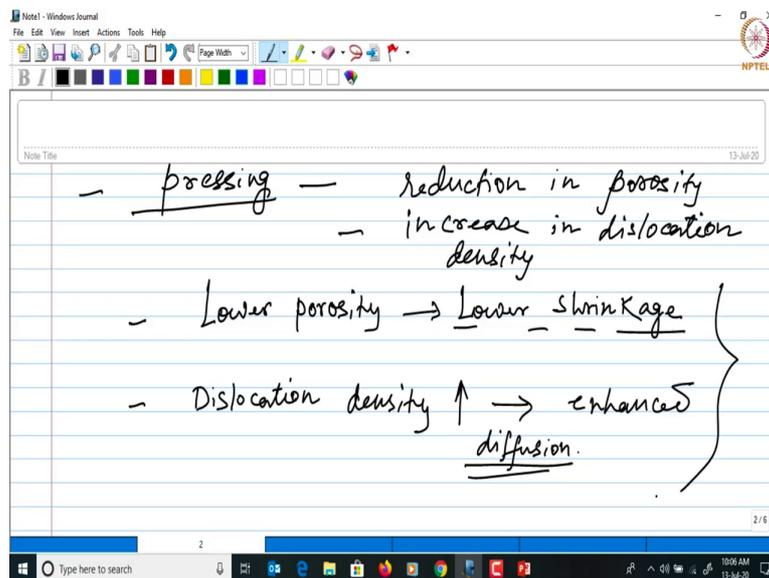 Note1 - Windows Journal
File Edit View Insert Actions Tools Help
Page Width
NPTEL
B I
Note Title
13-Jul-20
- pressing - reduction in porosity
- increase in dislocation
density
- Lower porosity → Lower shrinkage
- Dislocation density ↑ → enhanced
diffusion.
2/6
2
Type here to search
10:06 AM
13-Jul-20